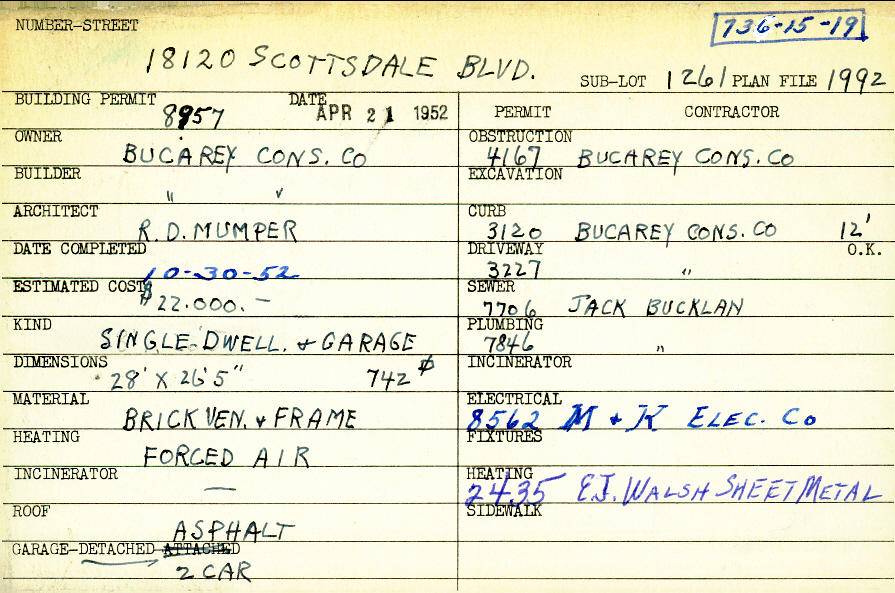 736-15-19
NUMBER-STREET
18120 SCOTTSDALE BLVD.
SUB-LOT 1261 PLAN FILE 1992
BUILDING PERMIT 8957 DATE APR 21 1952
OWNER BUCAREY CONS. CO
BUILDER " "
ARCHITECT R.D. MUMPER
DATE COMPLETED 10-30-52
ESTIMATED COST $22.000.—
KIND SINGLE-DWELL. & GARAGE
DIMENSIONS 28' X 26'5" 742
MATERIAL BRICK VEN. & FRAME
HEATING FORCED AIR
INCINERATOR —
ROOF ASPHALT
GARAGE-DETACHED ATTACHED
2 CAR
PERMIT CONTRACTOR
OBSTRUCTION 4167 BUCAREY CONS. CO
EXCAVATION
CURB 3120 BUCAREY CONS. CO 12'
DRIVEWAY 3227 " O.K.
SEWER 7706 JACK BUCKLAN
PLUMBING 7846 "
INCINERATOR
ELECTRICAL 8562 M & K ELEC. CO
FIXTURES
HEATING 2435 E.J. WALSH SHEET METAL
SIDEWALK